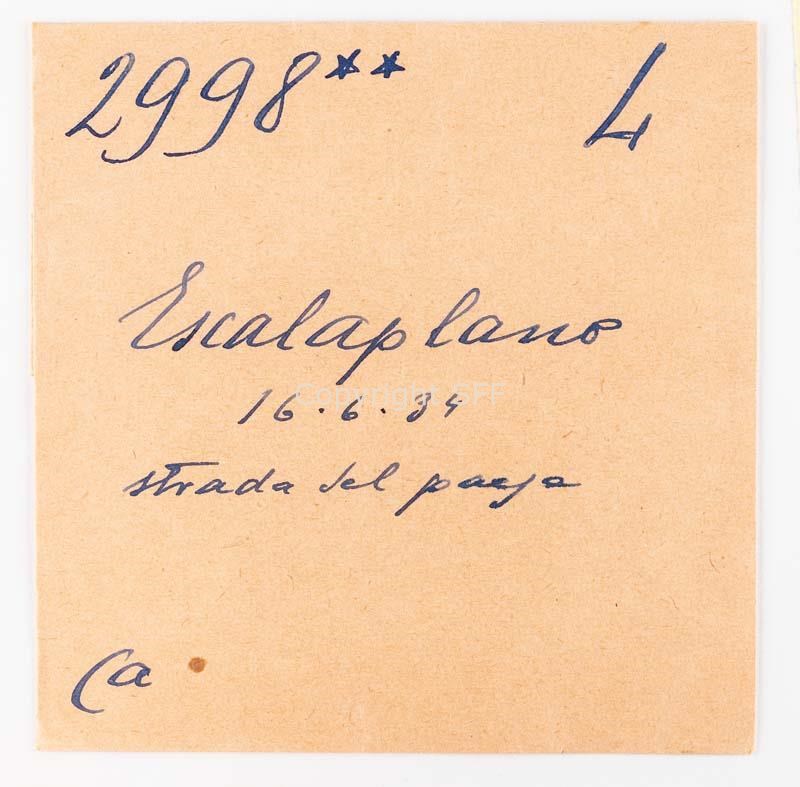 2998** 4
Escalaplano
Copyright SFF
16.6.34
strada del paese
Ca